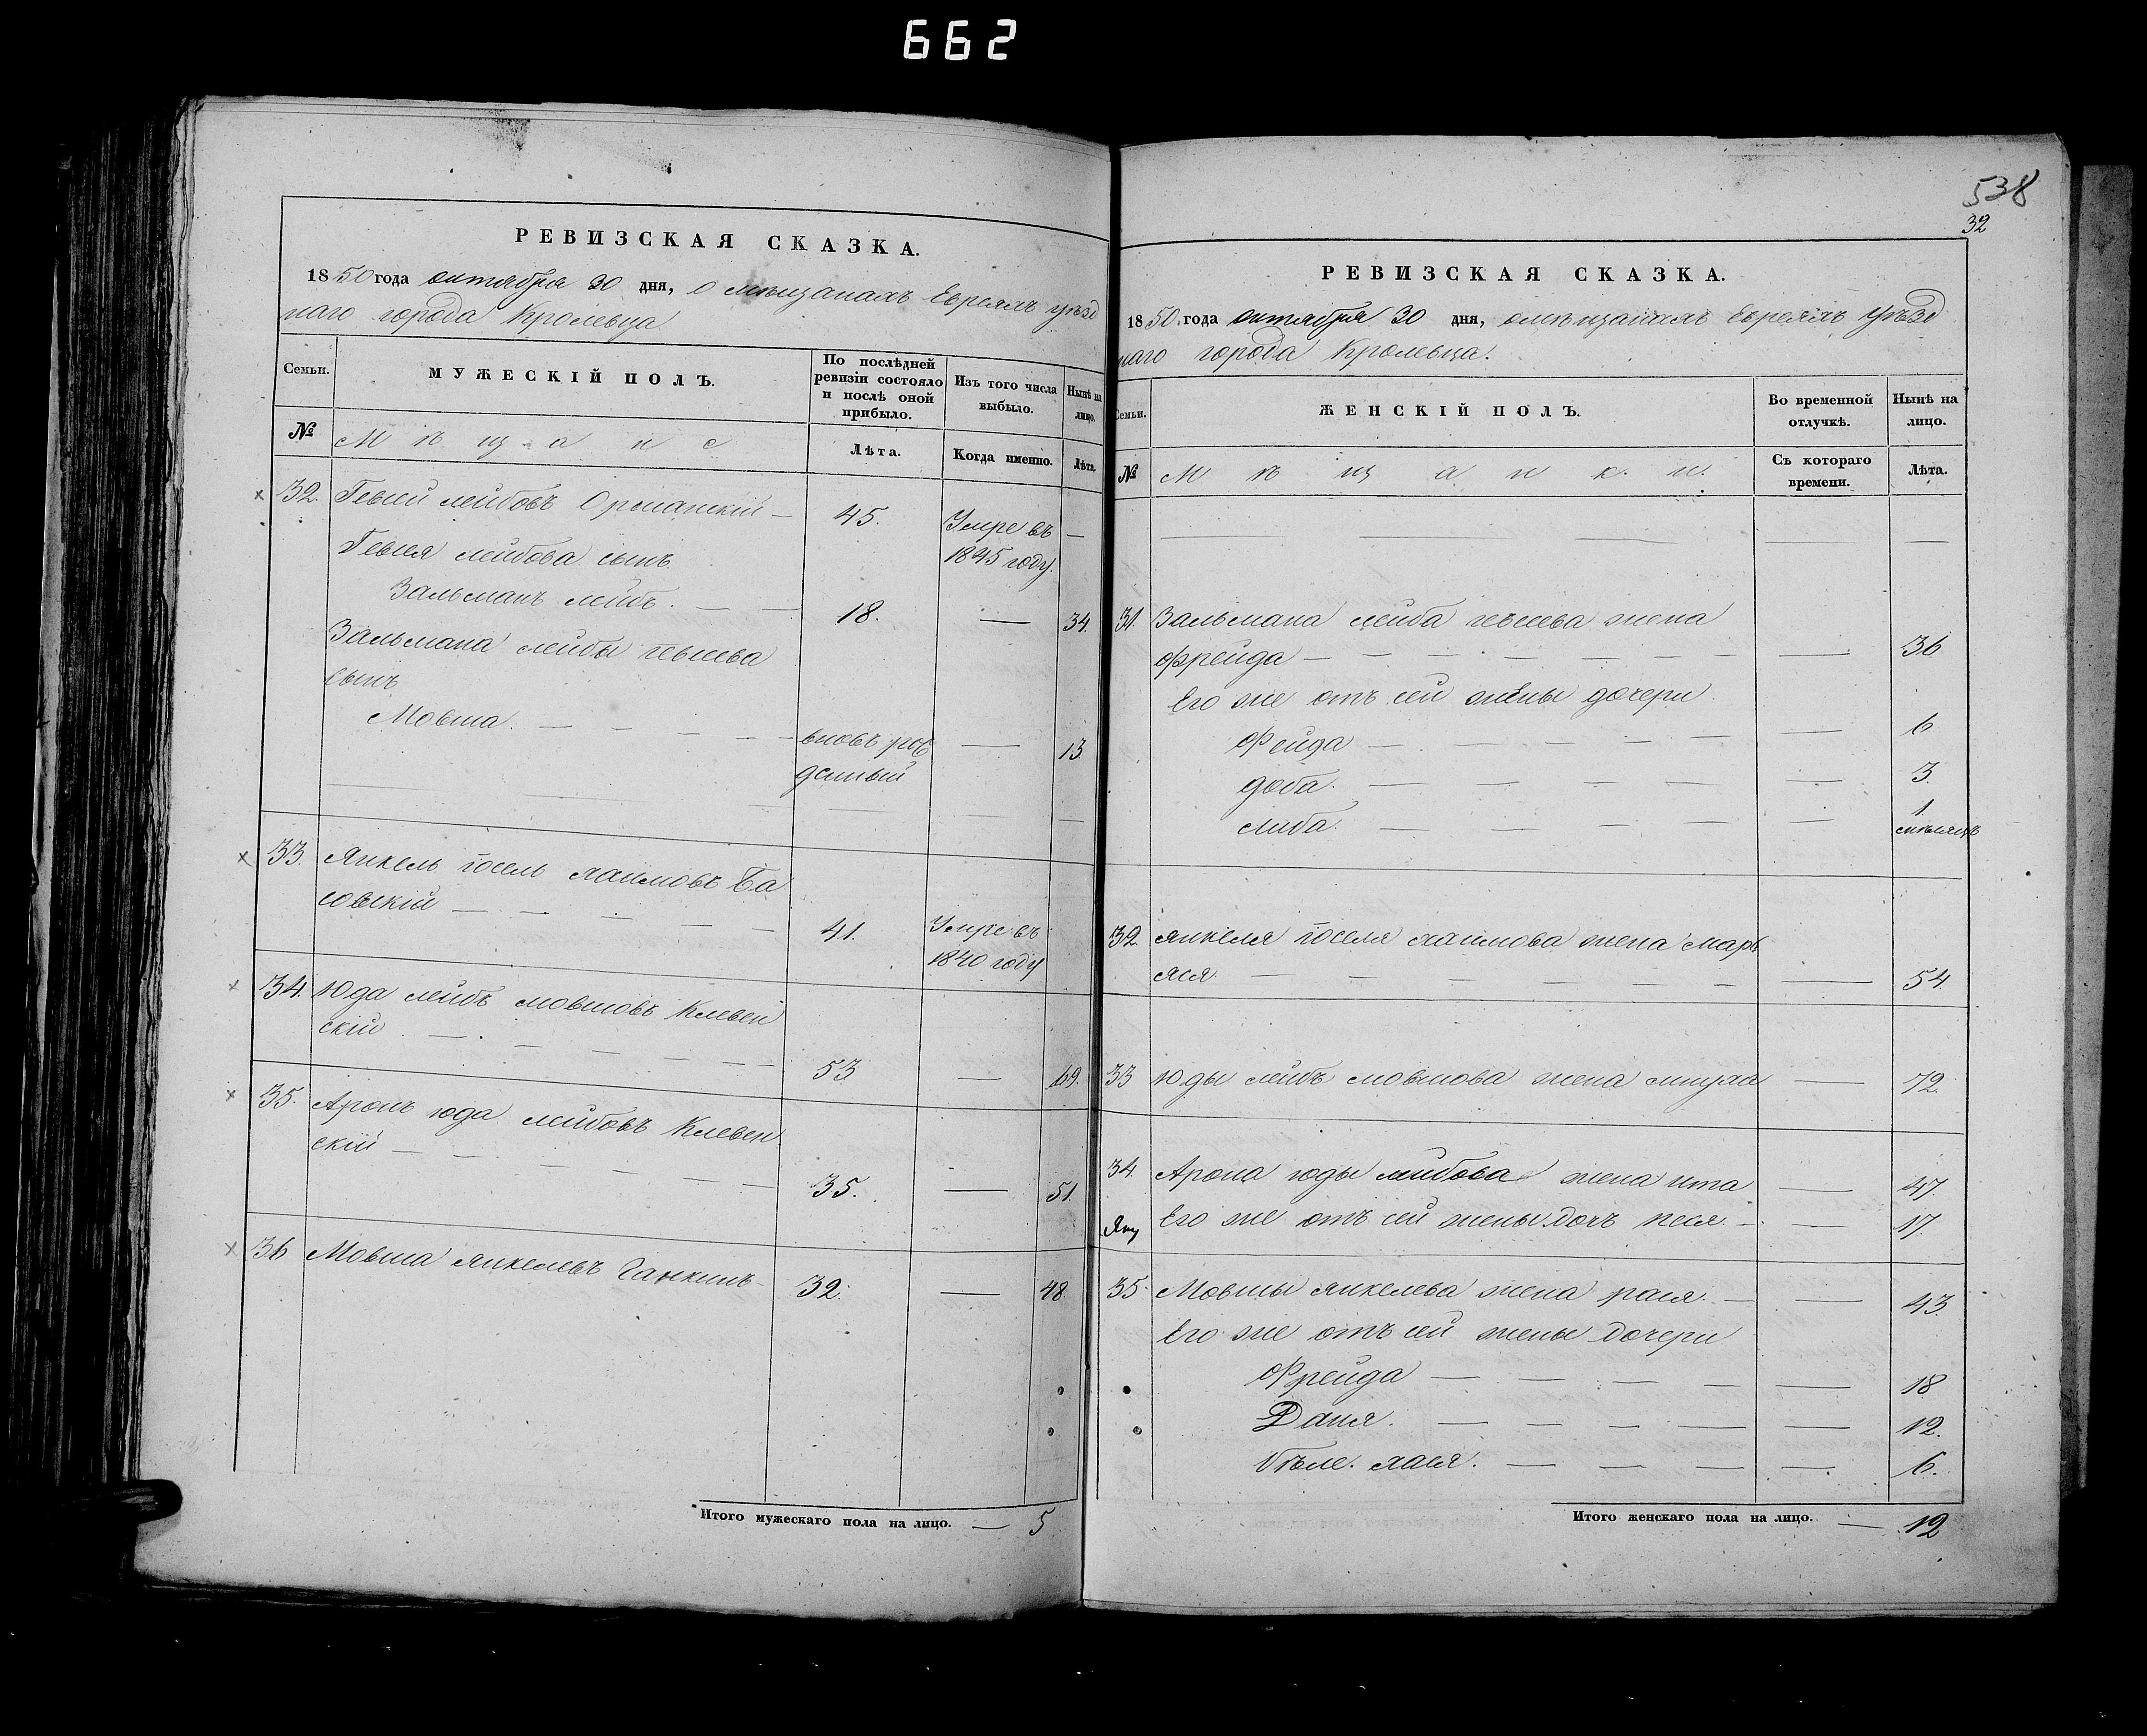 662
РЕВИЗСКАЯ СКАЗКА.
1850 года октября 30 дня, о мѣщанахъ Евреяхъ уѣзд
наго города Кролевца
Семьи. МУЖЕСКІЙ ПОЛЪ. По послѣдней ревизіи состояло и послѣ оной прибыло. Изъ того числа выбыло. Нынѣ на лицо.
№ Мѣщане Лѣта. Когда именно. Лѣта.
32. Гевсей лейбовъ 45. Умре въ —
Гевсея лейбова сынъ 1845 году.
Зальманъ лейбъ. — — 18. — 34.
Зальмана лейбы гевсеева
сынъ
Мовша. — — — — — вновь рож — 13.
денный
33. Янкель іосель хаимовъ Ба
совскій — — — — — 41. Умре въ
1840 году
34. Юда лейбъ мовшовъ Клевен
скій — — — — — — 53 — 69.
35. Аронъ юда лейбовъ Клевен
скій — — — — — — 35. — 51.
36 Мовша янкелевъ Ганкинъ — 32. — 48.
Итого мужескаго пола на лицо. — 5
538
32
РЕВИЗСКАЯ СКАЗКА.
1850 года октября 30 дня, о мѣщанахъ Евреяхъ уѣзд
наго города Кролевца.
Семьи. ЖЕНСКІЙ ПОЛЪ. Во временной отлучкѣ. Нынѣ на лицо.
№ Мѣщанки. Съ котораго времени. Лѣта.
31. Зальмана лейба гевсеева жена
фрейда — — — — — — — — 36
Его же отъ сей жены дочери
Фейда — — — — — — 6
доба. — — — — — — 3.
либа. — — — — — 1.
мѣсяцъ
32. янкеля іоселя хаимова жена марь
яся. — — — — — — — 54.
33 юды лейбъ мовшова жена мнуха — 72.
34. Арона юды лейбова жена ита — 47.
Его же отъ сей жены дочь песя. — — 17.
35. Мовши янкелева жена рася. — — 43.
Его же отъ сей жены дочери
Фрейда — — — — — — 18
Даня. — — — — — 12.
хася. — — — — — 6.
Итого женскаго пола на лицо. — 12